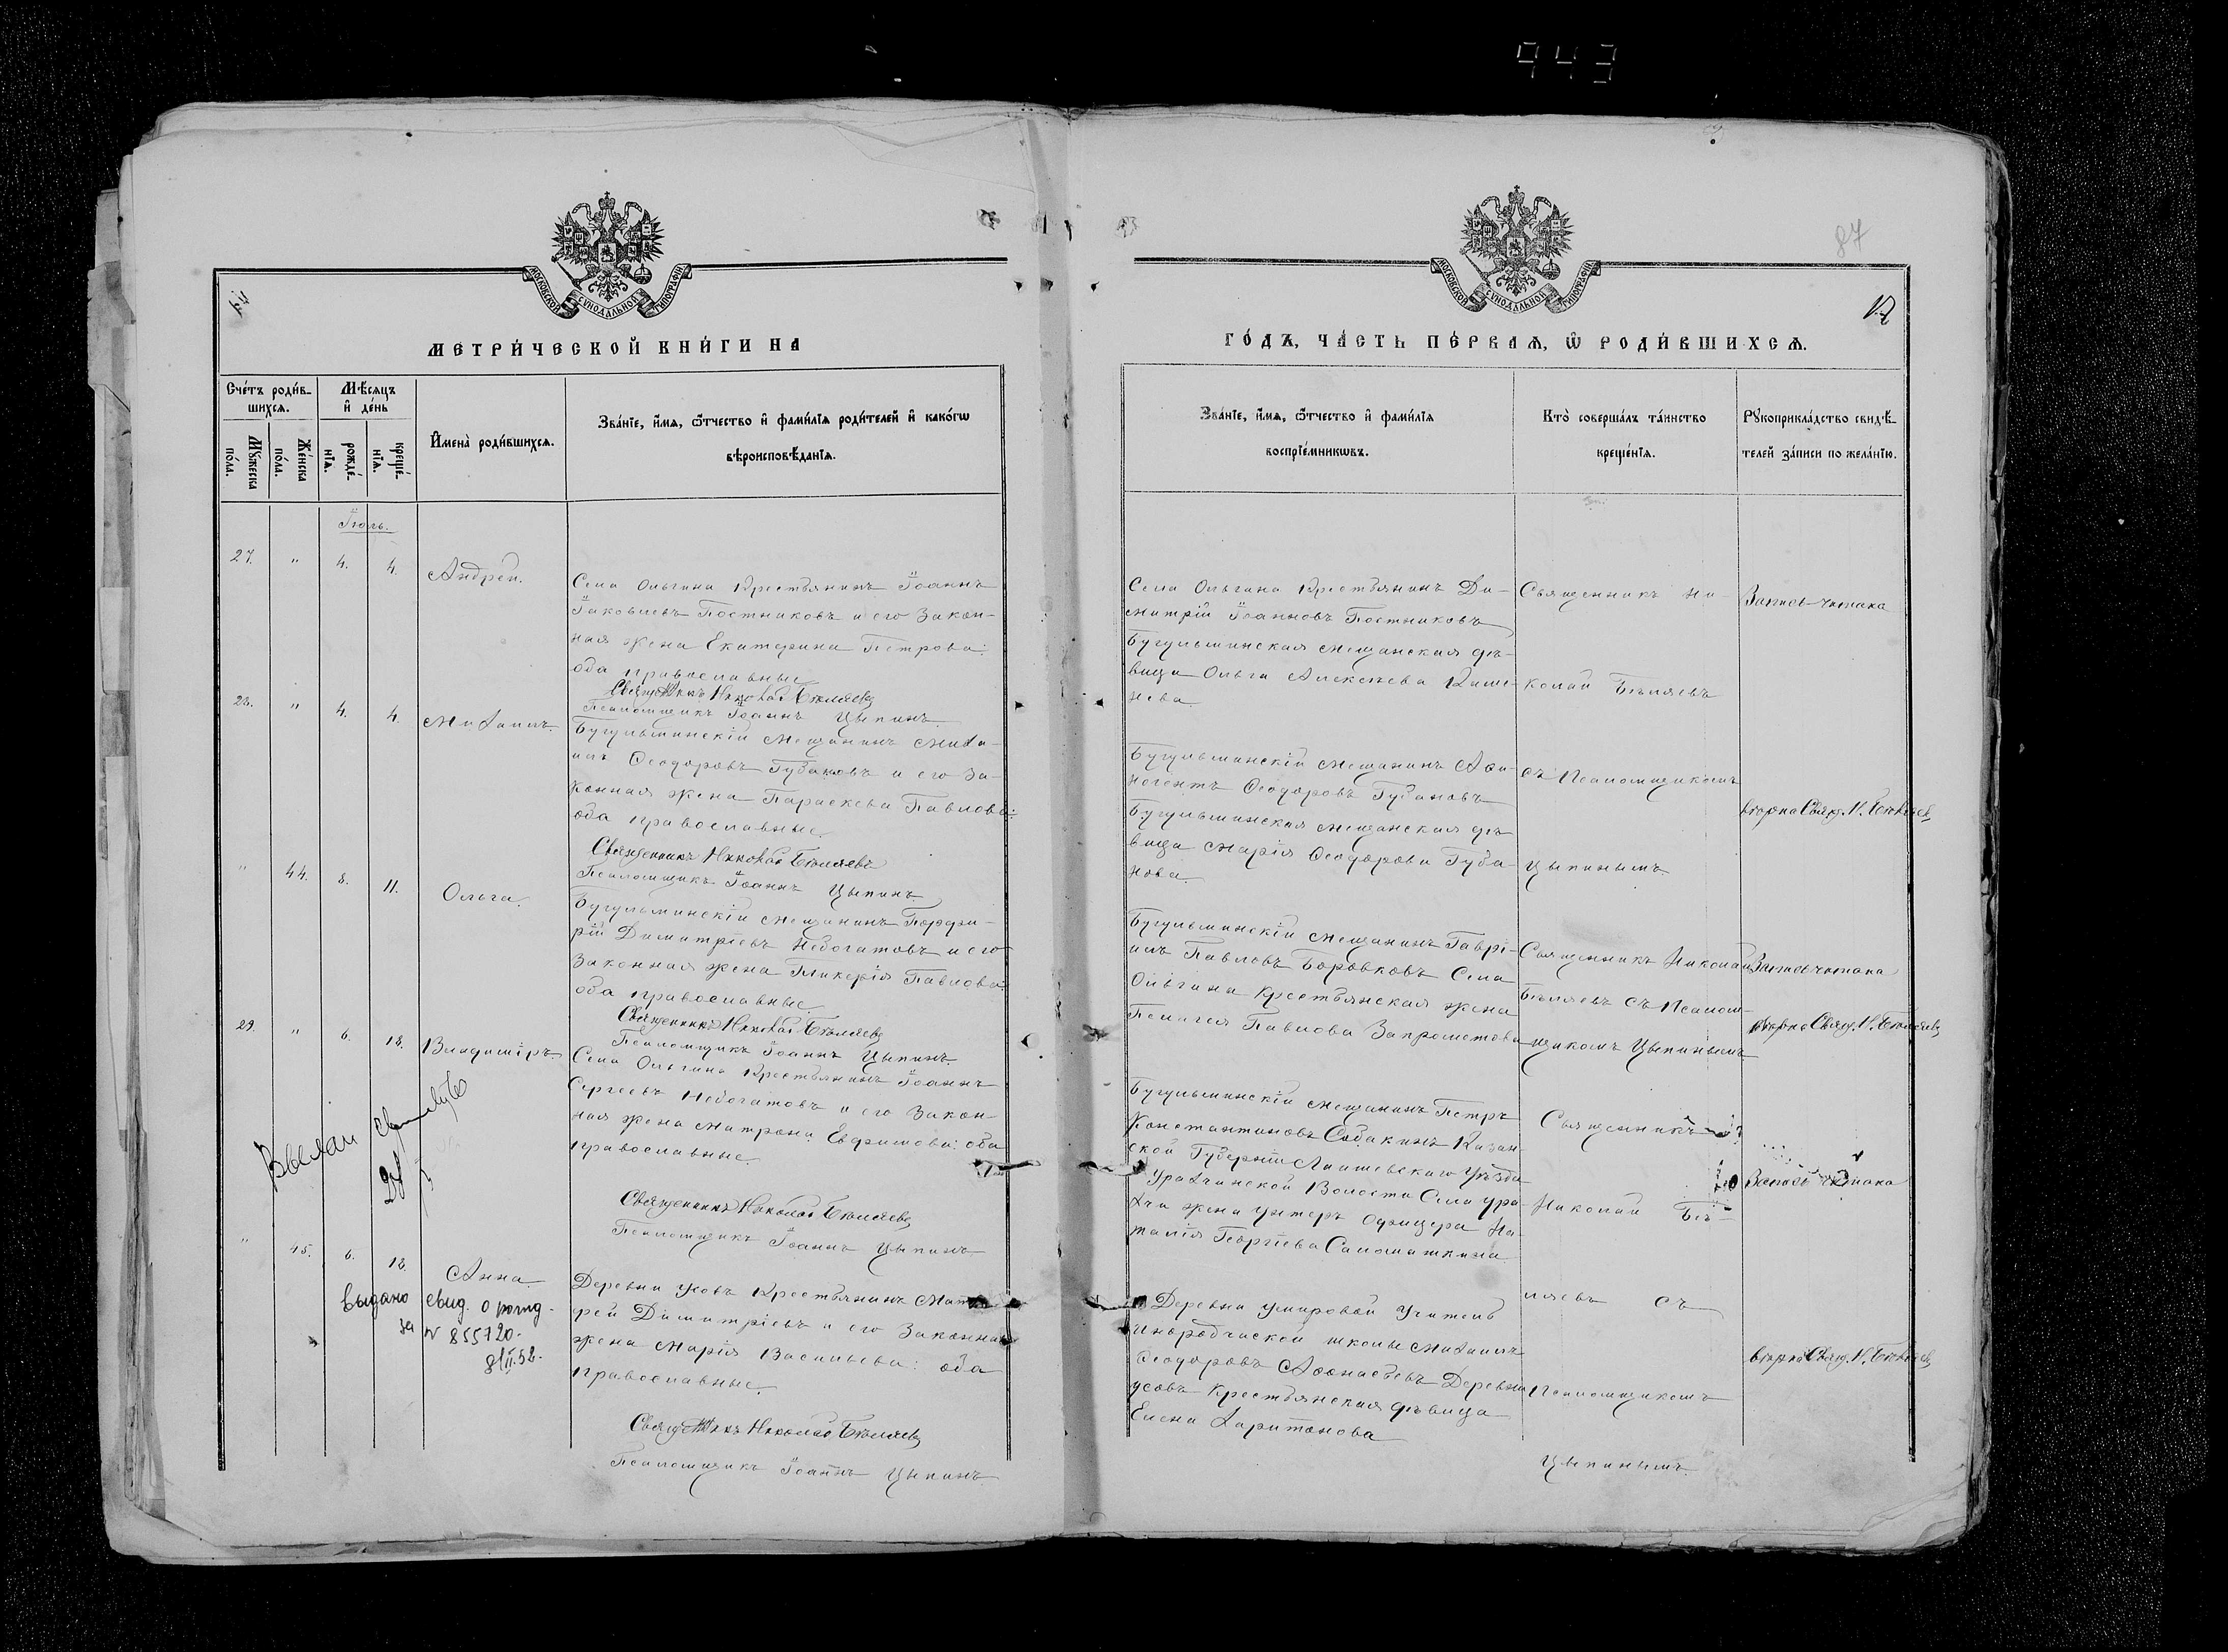 943
87
МОСКОВСКОЙ СУНОДАЛЬНОЙ ТИПОГРАФІИ
МЕТРИ́ЧЕСКОЙ КНИ́ГИ НА
Сче́тъ роди́в-
шихсѧ.
Мѹ́жеска по́ла.
Же́нска по́ла.
Мѣ́сѧцъ
и҆ де́нь
рожде́-
нїѧ.
креще́-
нїѧ.
И҆мена̀ роди́вшихсѧ.
Зва́нїе, и҆́мѧ, ѻ҆́тчество и҆ фами́лїѧ роди́телей и҆ како́гѡ
вѣроисповѣ́данїѧ.
Іюль.
27. " 4. 4. Андрей.
Села Ольгина Крестьянинъ Іоаннъ
Іаковлевъ Постниковъ и его Закон-
ная жена Екатерина Петрова:
оба православные.
Священникъ Николай Бѣляевъ
Псаломщикъ Іоаннъ Цыпинъ.
28. " 4. 4. Михаилъ.
Бугульминскій мещанинъ Миха-
илъ Ѳеодоровъ Губановъ и его За-
конная жена Параскева Павлова:
оба православные.
Священникъ Николай Бѣляевъ
Псаломщикъ Іоаннъ Цыпинъ
" 44. 8. 11. Ольга.
Бугульминскій мещанинъ Порфи-
рій Димитріевъ Небогатовъ и его
Законная жена Гликерія Павлова:
оба православные.
Священникъ Николай Бѣляевъ
Псаломщикъ Іоаннъ Цыпинъ.
29. " 6. 18. Владиміръ.
Села Ольгина Крестьянинъ Іоаннъ
Сергеевъ Небогатовъ и его Закон-
ная жена Матрона Евфимова: оба
православные.
Священникъ Николай Бѣляевъ
Псаломщикъ Іоаннъ Цыпинъ
" 45. 6. 18. Анна.
выдано свид. о рожд-
за № 855720.
8/II.52.
Деревни Усовъ Крестьянинъ
Димитріевъ и его Законная
жена Марія Васильева: оба
православные.
Священникъ Николай Бѣляевъ
Псаломщикъ Іоаннъ Цыпинъ
МОСКОВСКОЙ СУНОДАЛЬНОЙ ТИПОГРАФІИ
ГО́ДЪ, ЧА́СТЬ ПЕ́РВАѦ, Ѡ҆ РОДИ́ВШИХСѦ.
Зва́нїе, и҆́мѧ, ѻ҆́тчество и҆ фами́лїѧ
воспрїе́мникѡвъ.
Кто̀ соверша́лъ та́инство
креще́нїѧ.
Рѹкоприкла́дство свидѣ́-
телей за́писи по жела́нїю.
Села Ольгина Крестьянинъ Ди-
митрій Іоанновъ Постниковъ
Бугульминская мещанская дѣ-
вица Ольга Алексѣева Каше-
нева.
Бугульминскій мещанинъ Аѳи-
ногентъ Ѳеодоровъ Губановъ
Бугульминская мещанская дѣ-
вица Марія Ѳеодорова Губа-
нова.
Священникъ Ни-
колай Бѣляевъ
съ Псаломщикомъ
Цыпинымъ.
Запись читана
вѣрна Свящ. Н. Бѣляевъ
Бугульминскій мещанинъ Гаврі-
илъ Павловъ Боровковъ Села
Ольгина крестьянская жена
Пелагея Павлова Запрометова
Священникъ Николай
Бѣляевъ съ Псалом-
щикомъ Цыпинымъ
Запись читана
вѣрна Свящ. Н. Бѣляевъ
Бугульминскій мещанинъ Петръ
Константиновъ Собакинъ Казан-
ской Губерніи Лаишевскаго Уѣзда
Урахчинской Волости Села Ура-
хчи жена унтеръ офицера На-
талія Георгіева Саломаткина
Деревни Умировой Учитель
Инородческой школы Михаилъ
Ѳеодоровъ Аѳонасьевъ Деревни
Усовъ Крестьянская дѣвица
Елена Харитонова
Священникъ
Николай Бѣ-
ляевъ съ
Псаломщикомъ
Цыпинымъ.
Запись читана
вѣрна Свящ. Н. Бѣляевъ